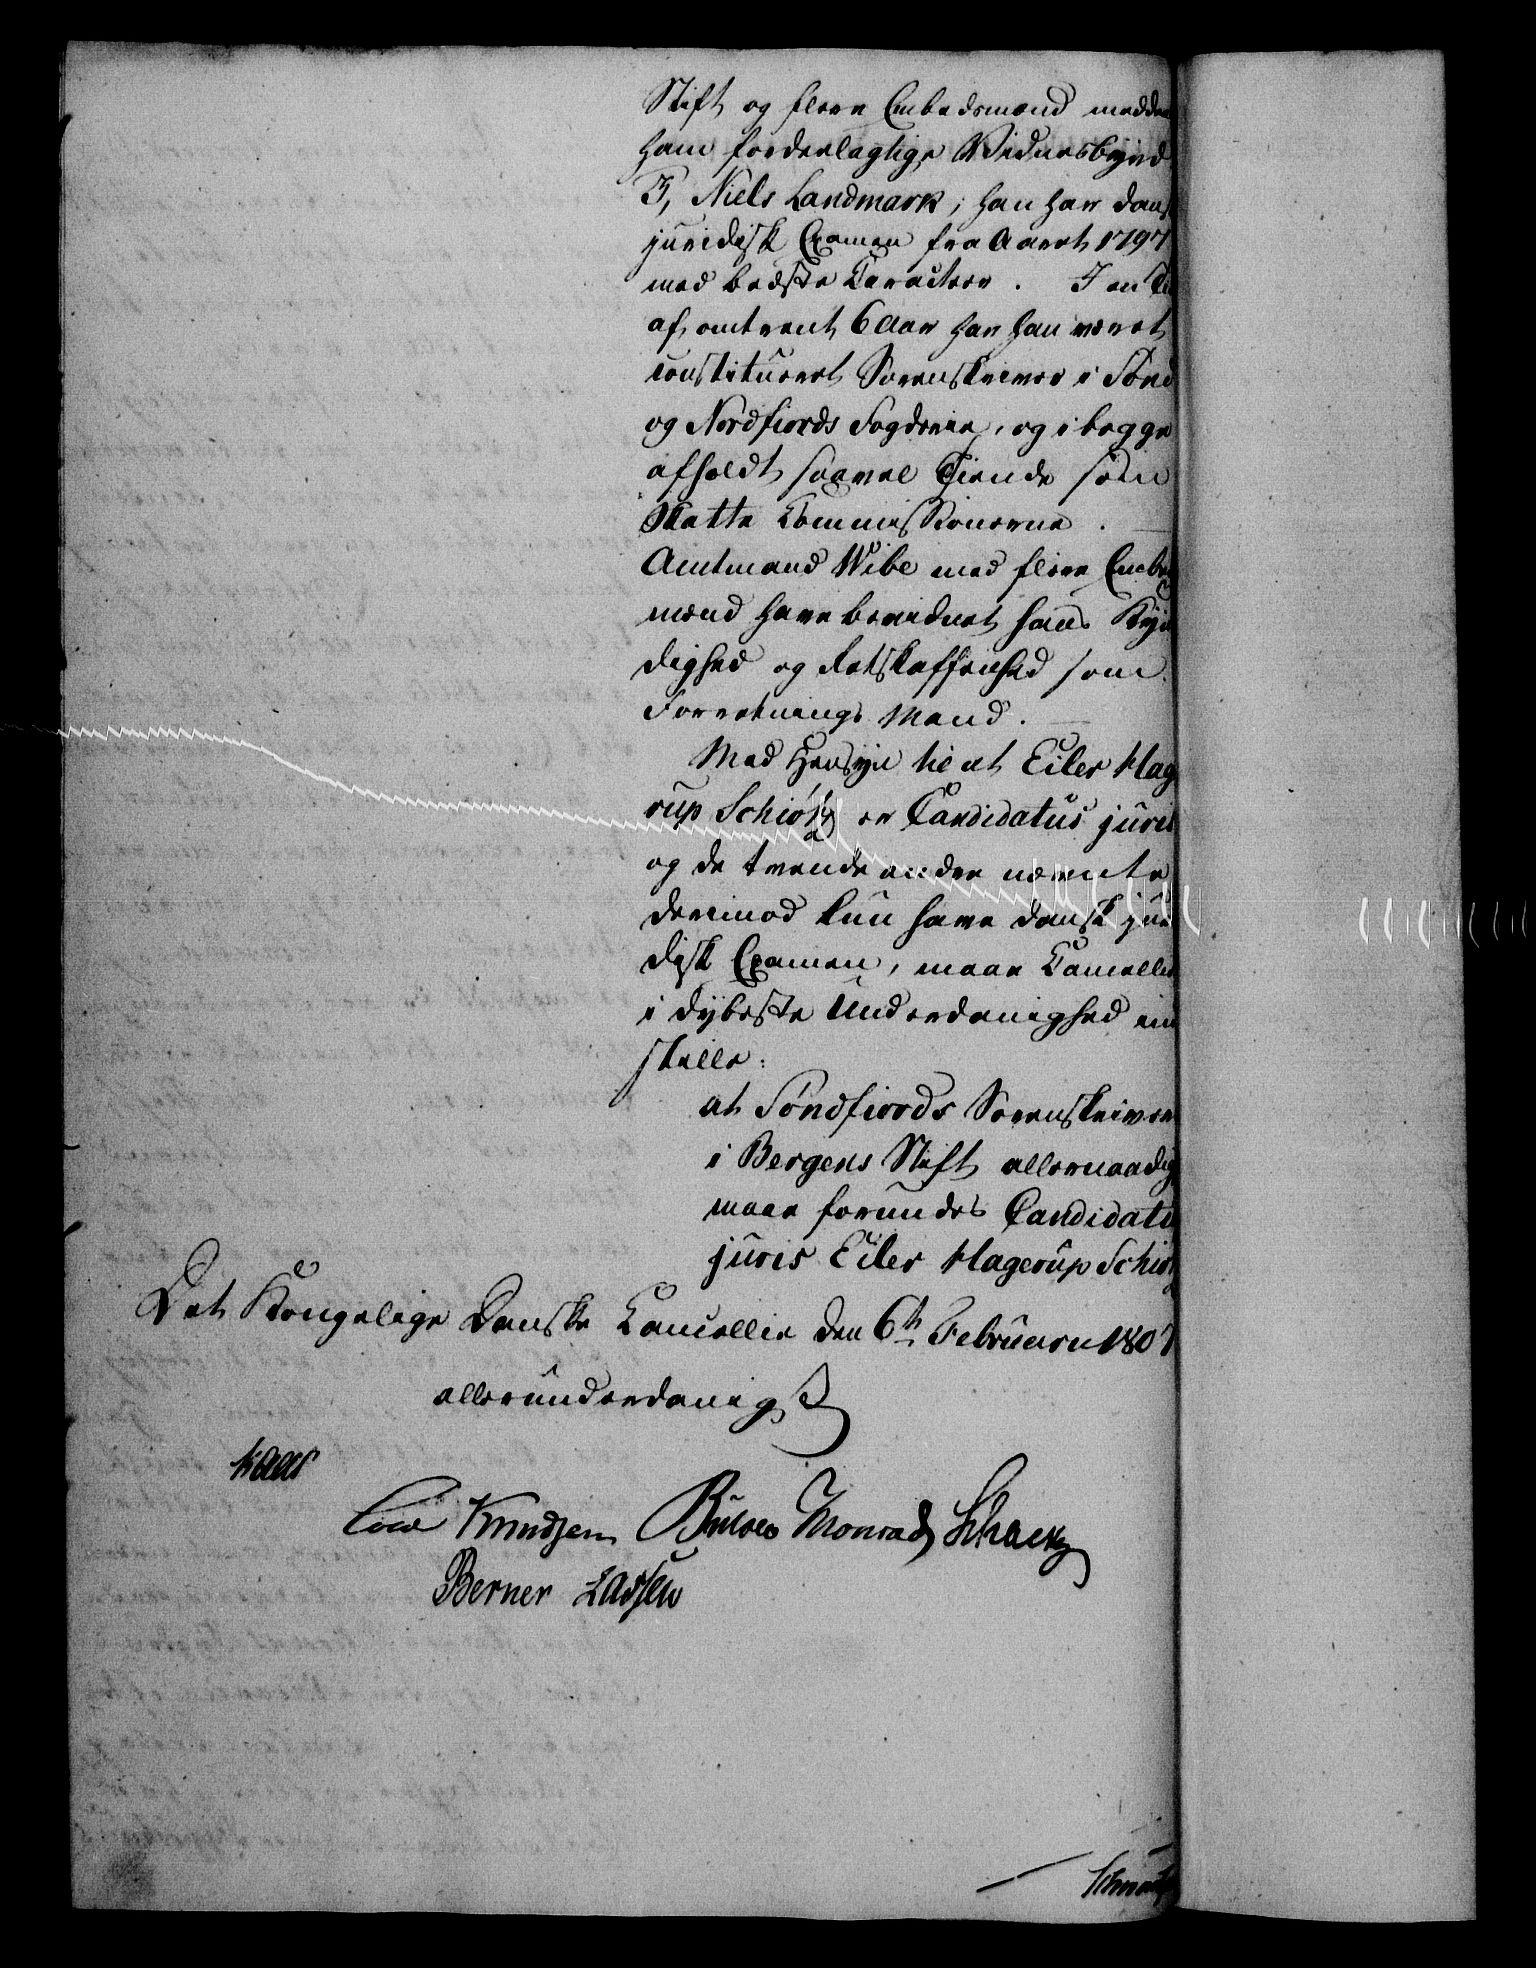 Stift og flere Embedsmænd medde
ham fordeelagtige Vidnesbyrd
3, Niels Landmark; han har dans
juridisk Examen fra Aaret 1797
med bedste Caracteer. I en Ti
af omtrent 6 Aar har han været
constitueret Sorenskriver i Sønd
og Nordfiords Fogderie, og i begge
afholdt saavel Tiende som
Skatte Commissionerne.
Amtmand Wibe med flere Embed
mænd have bevidnet hans Kyn
dighed og Retskaffenhed som
Forretnings Mand.
Med Hensyn til at Eiler Hag
rup Schiøtz er Candidatus juris
og de tvende andre nævnte
derimod kun have dansk juri
disk Examen, maae Cancellie
i dybeste Underdanighed ind
stille:
at Søndfiords Sorenskriver
i Bergens Stift allernaadig
maae forundes Candidatu
juris Eiler Hagerup Schiøt
Det Kongelige Danske Cancellie den 6th Februarii 1807
allerunderdanigst
Kaas
Cold Knudsen Bülow Monrad Schack
Berner Lassen